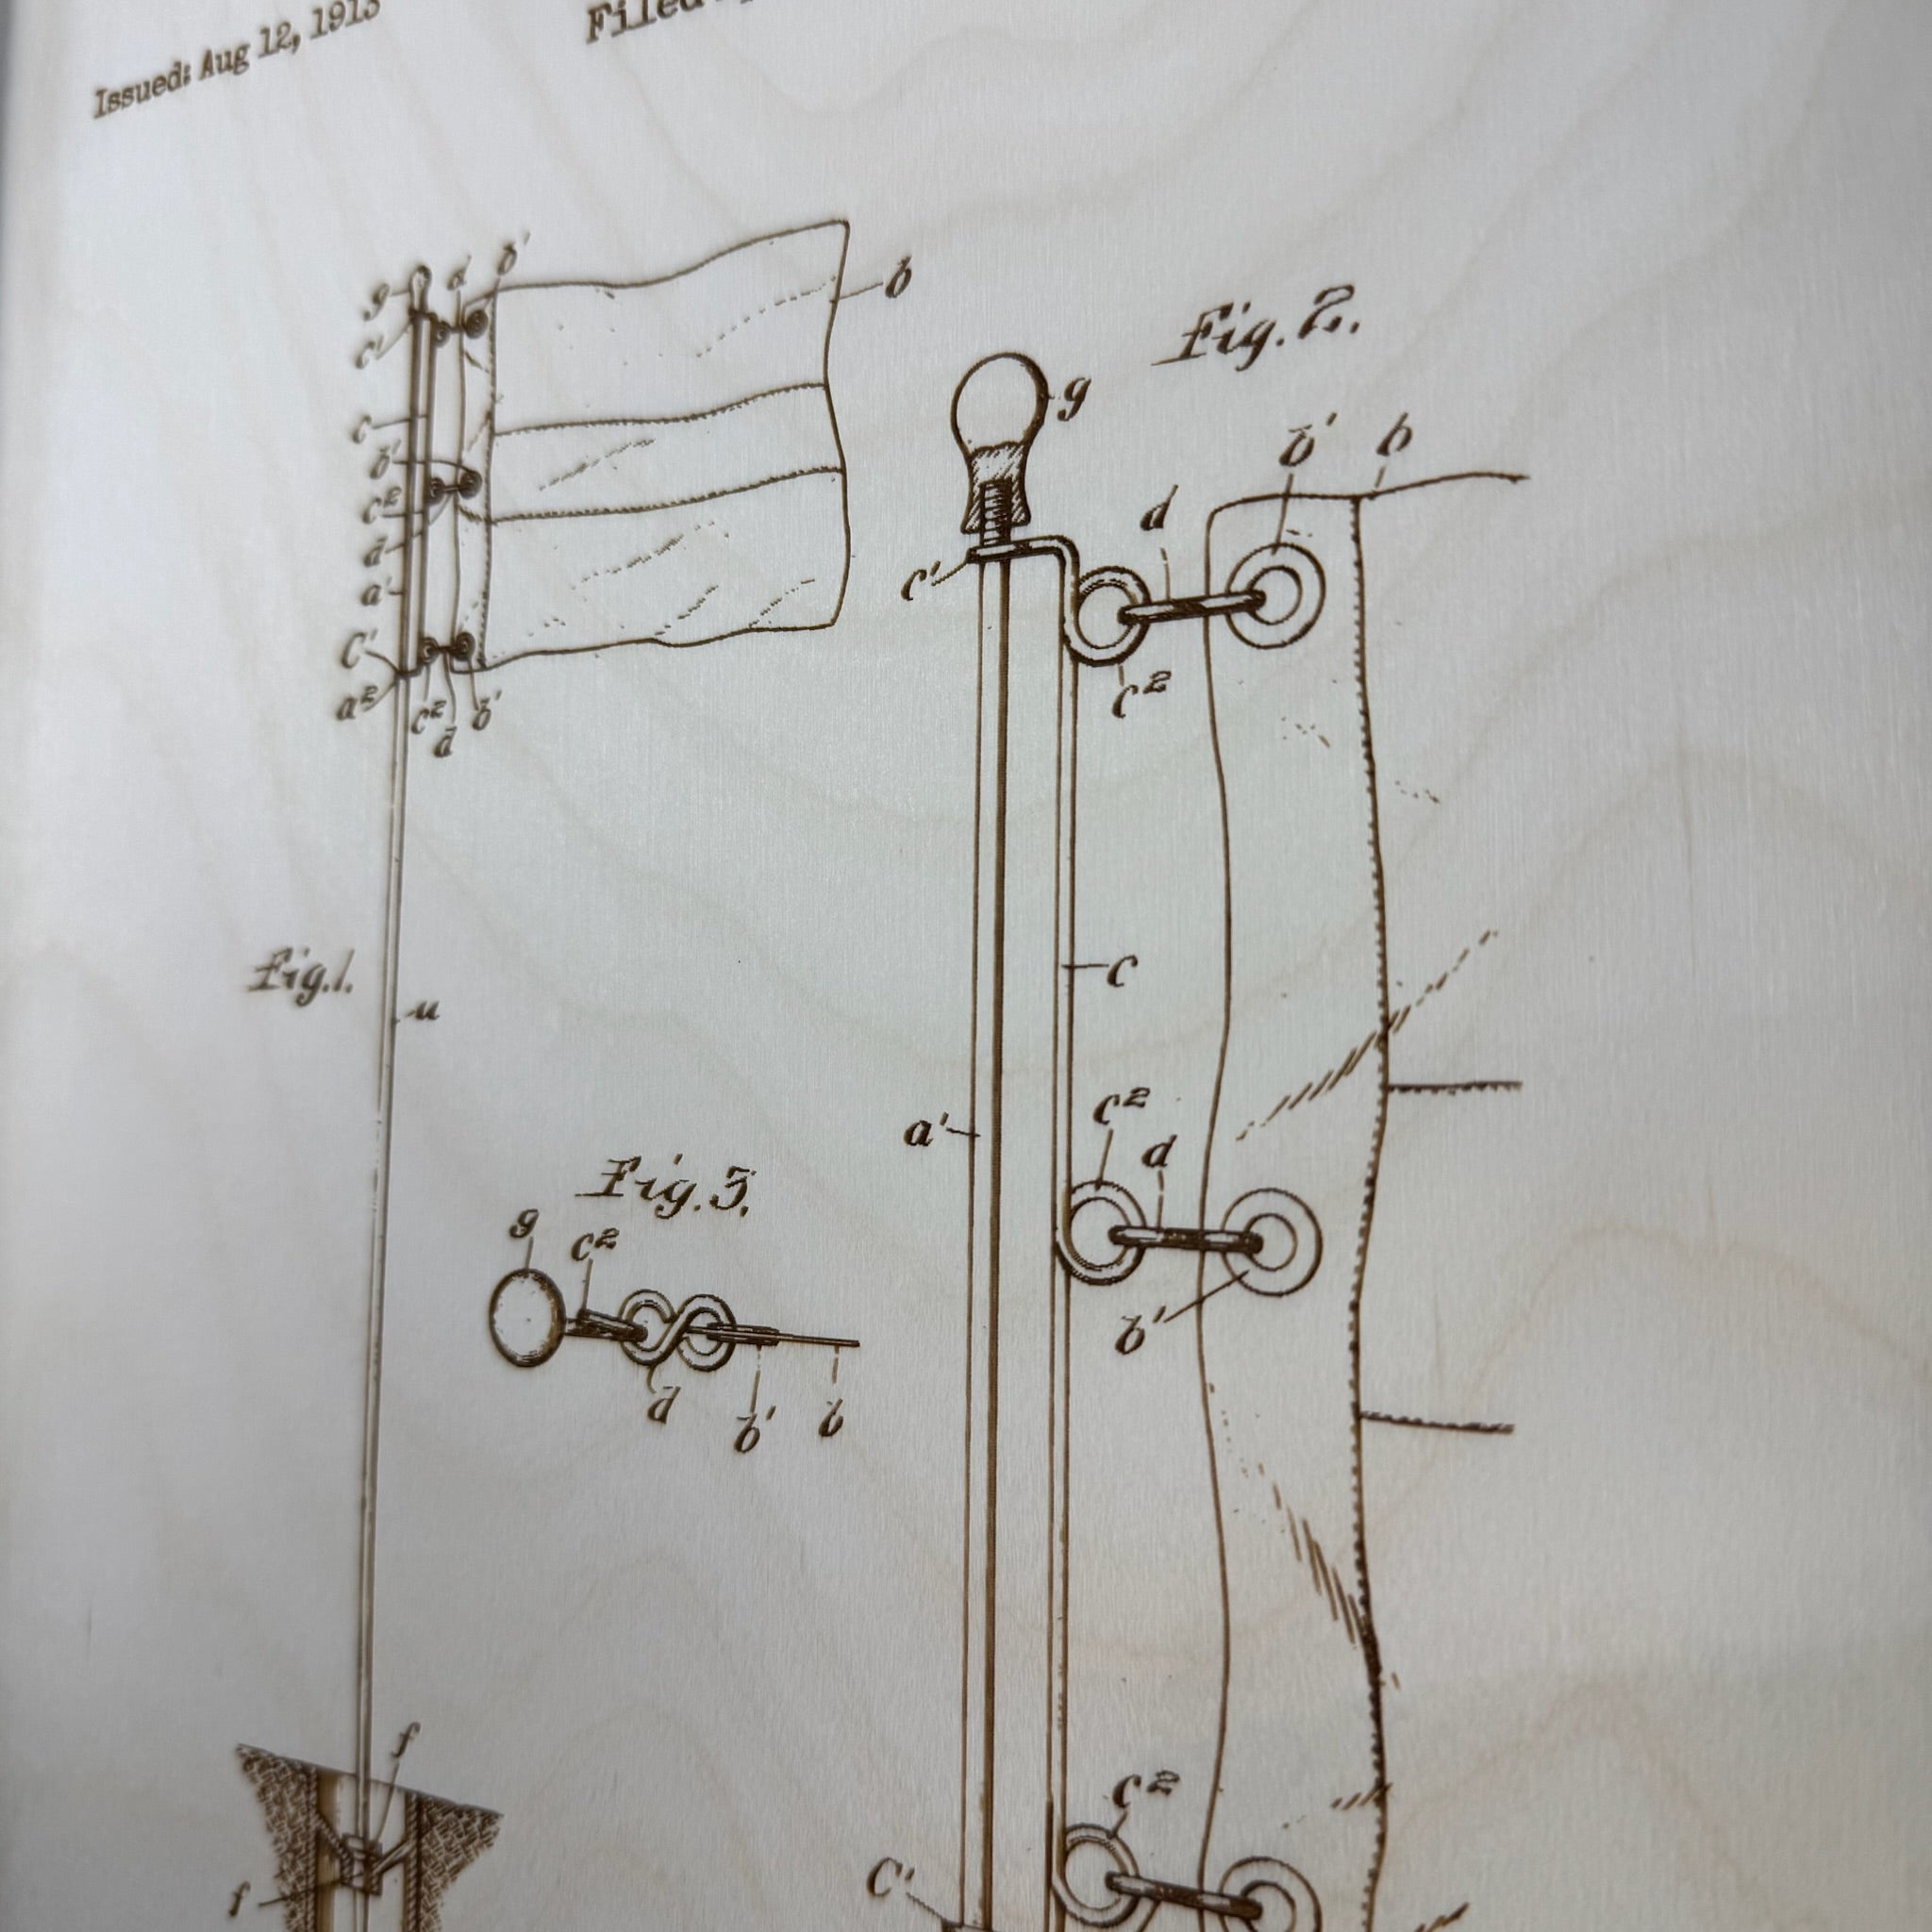 Issued: Aug 12, 1913
Filed
Fig. 2.
g
d
b'
b
c'
c
b'
c²
d
a'
C'
a²
c²
d
b'
g
b'
b
d
c'
c²
c
a'
c²
d
b'
c²
C'
Fig. 1.
Fig. 3.
g
c²
d
b'
b
f
f